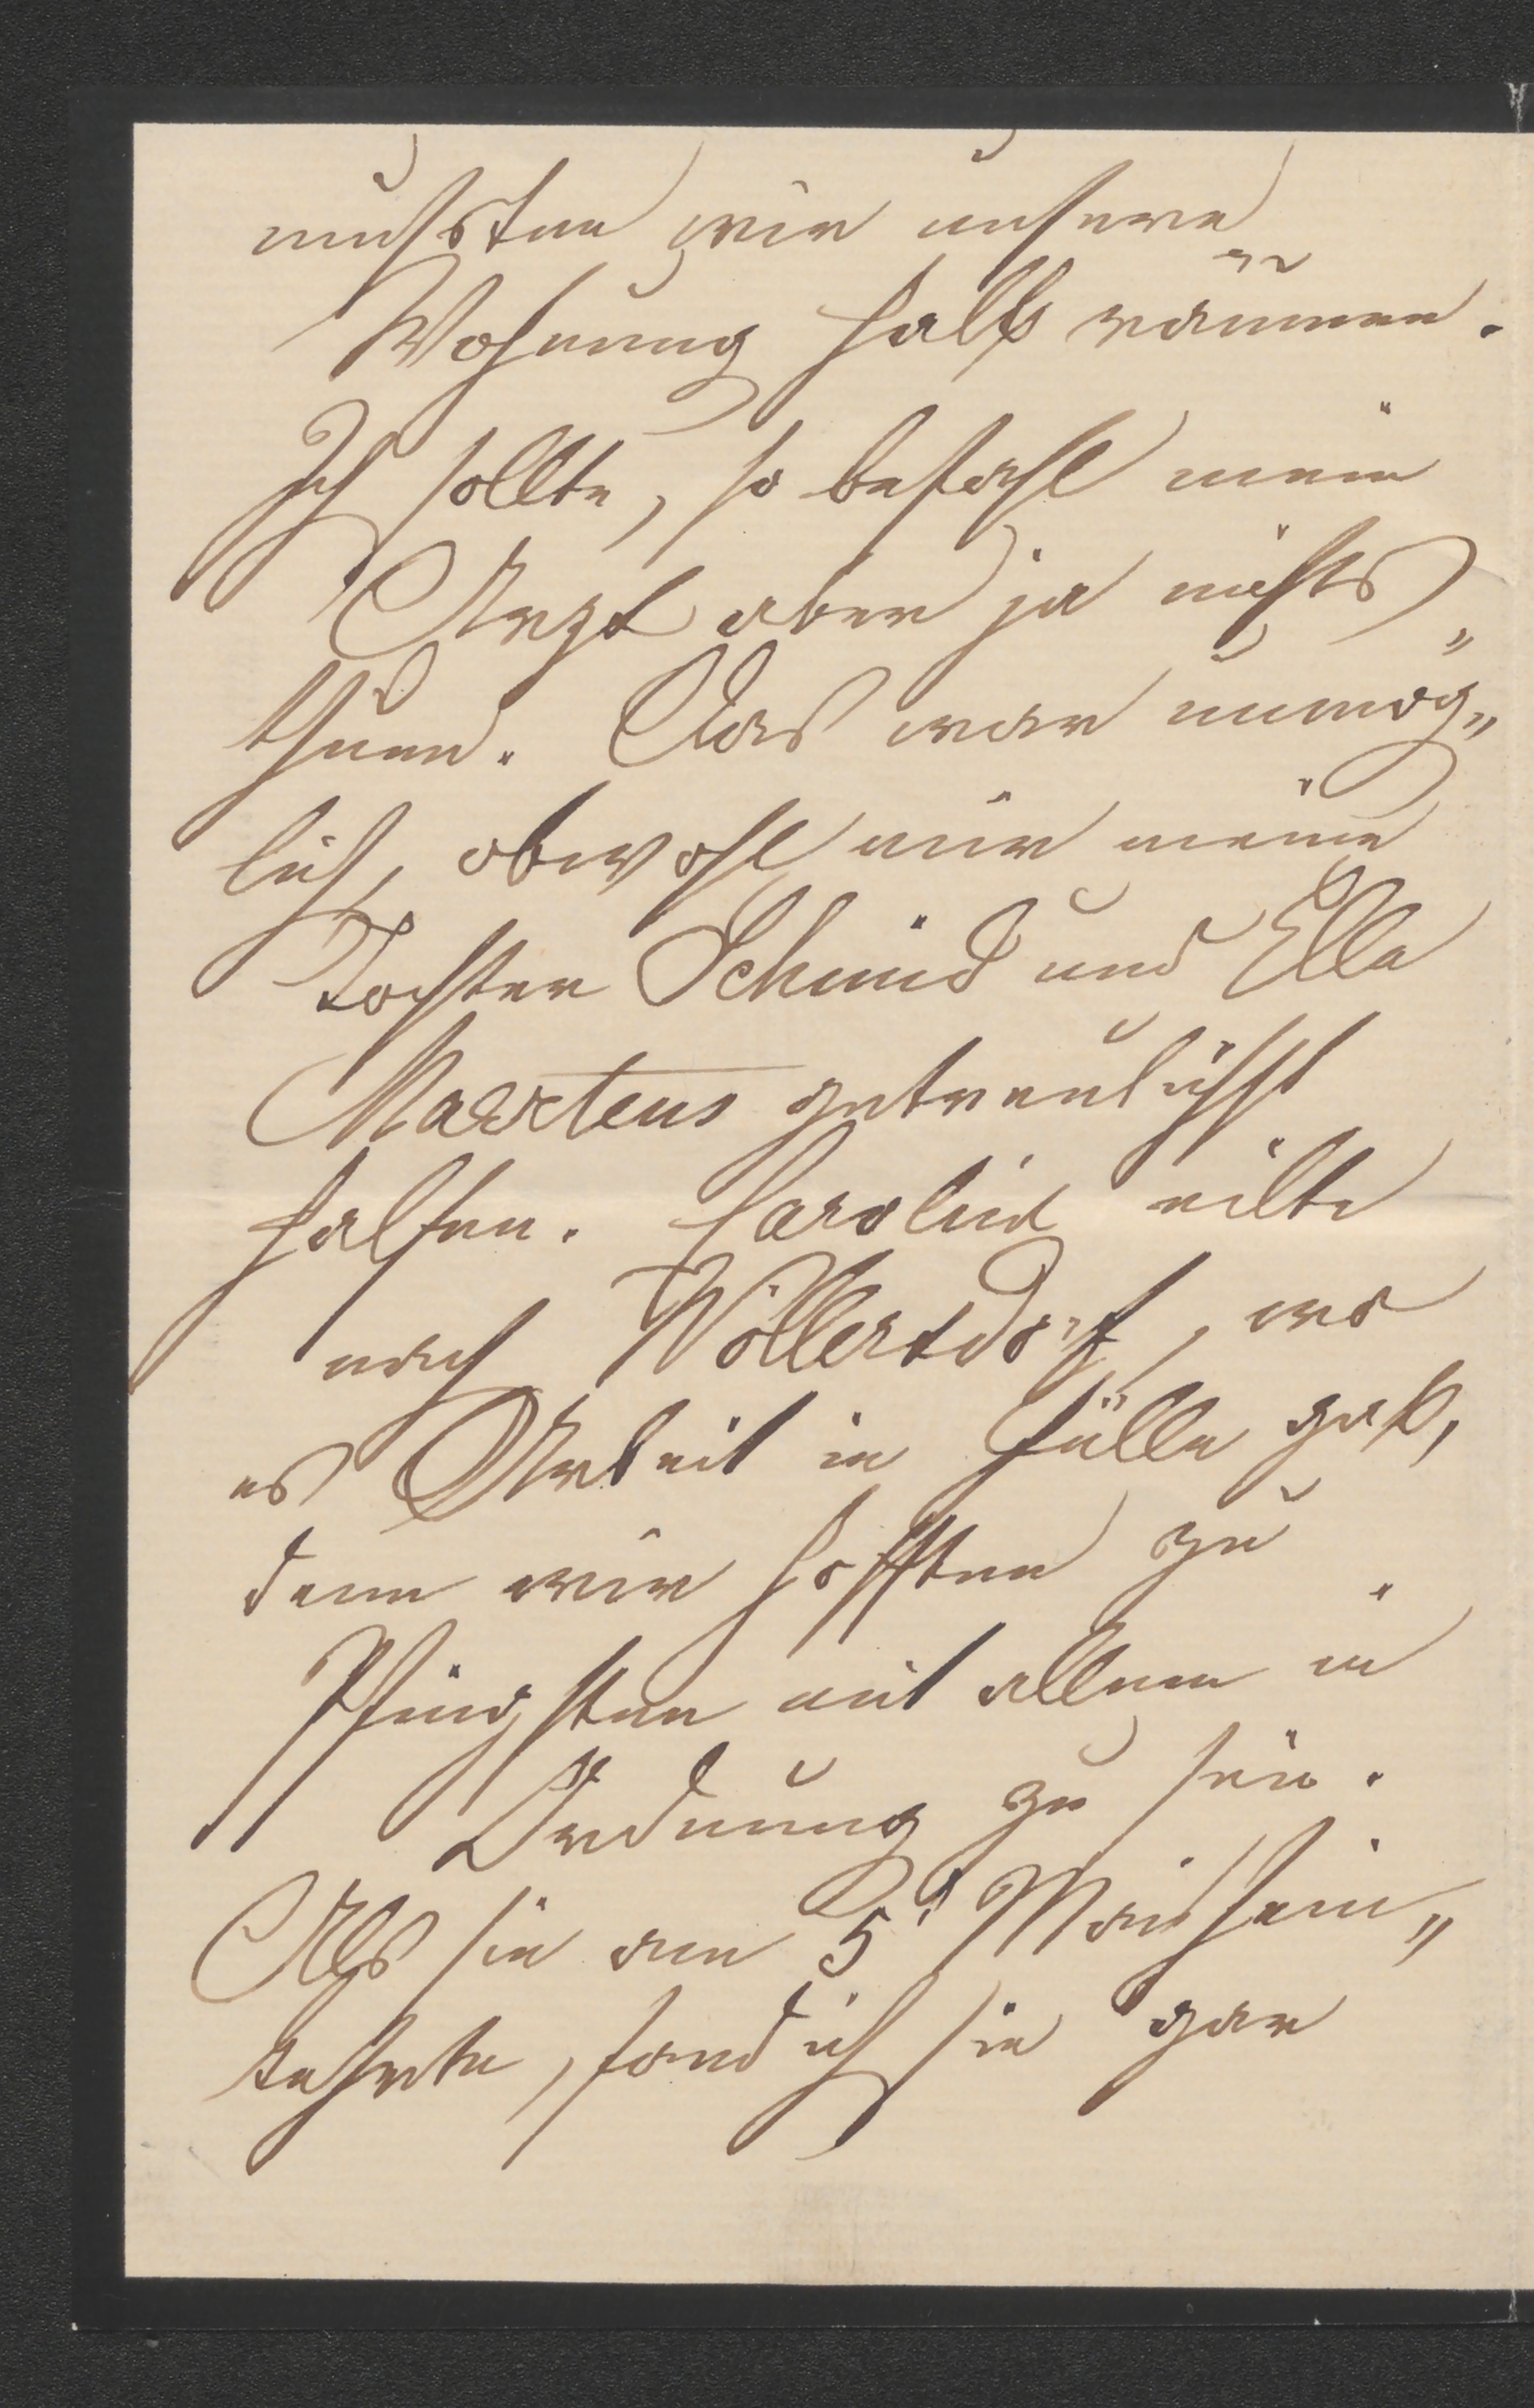 mussten wir unsere
Wohnung halb räumen.
Ich sollte, so befahl mein
Arzt aber ja nichts
thuen. Das war unmög„
lich, obwohl mir meine
Töchter Schmid und Ella
Martens getreulichst
halfen. Carolin eilte
nach Wöllersdorf, wo
es Arbeit in Fülle gab,
denn wir hofften zu
Pfingsten mit allem in
Ordnung zu sein.
Als sie am 5t Mai heim„
kehrte, fand ich sie gar